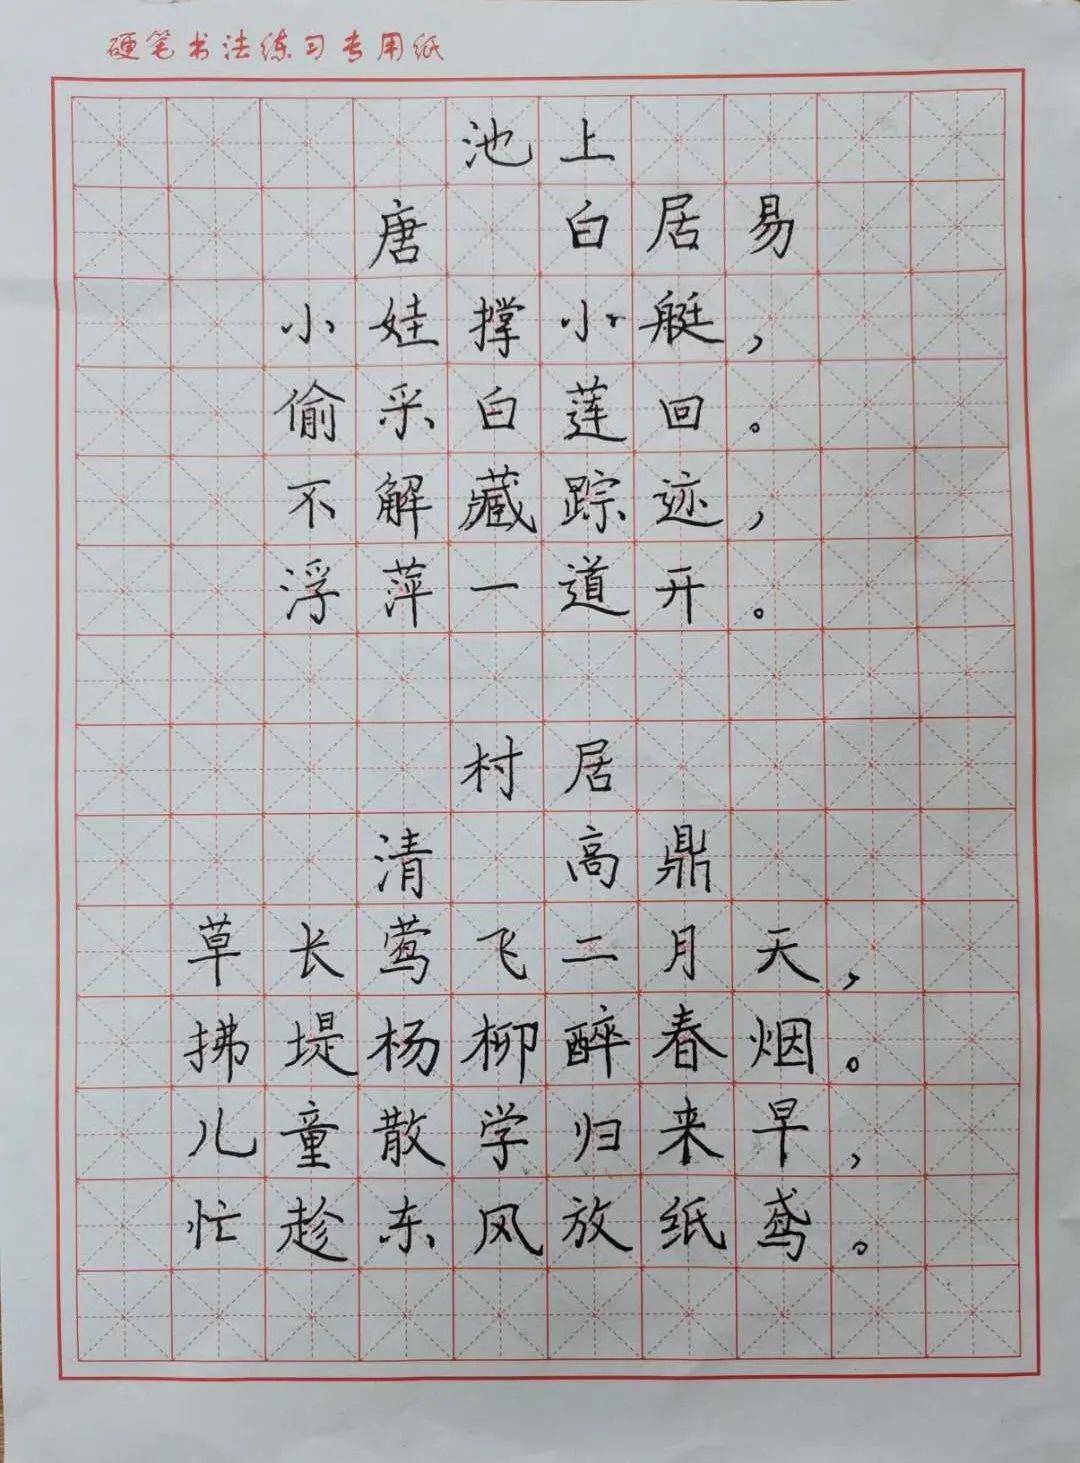 硬笔书法练习专用纸
池上
唐 白居易
小娃撑小艇，
偷采白莲回。
不解藏踪迹，
浮萍一道开。
村居
清 高鼎
草长莺飞二月天，
拂堤杨柳醉春烟。
儿童散学归来早，
忙趁东风放纸鸢。